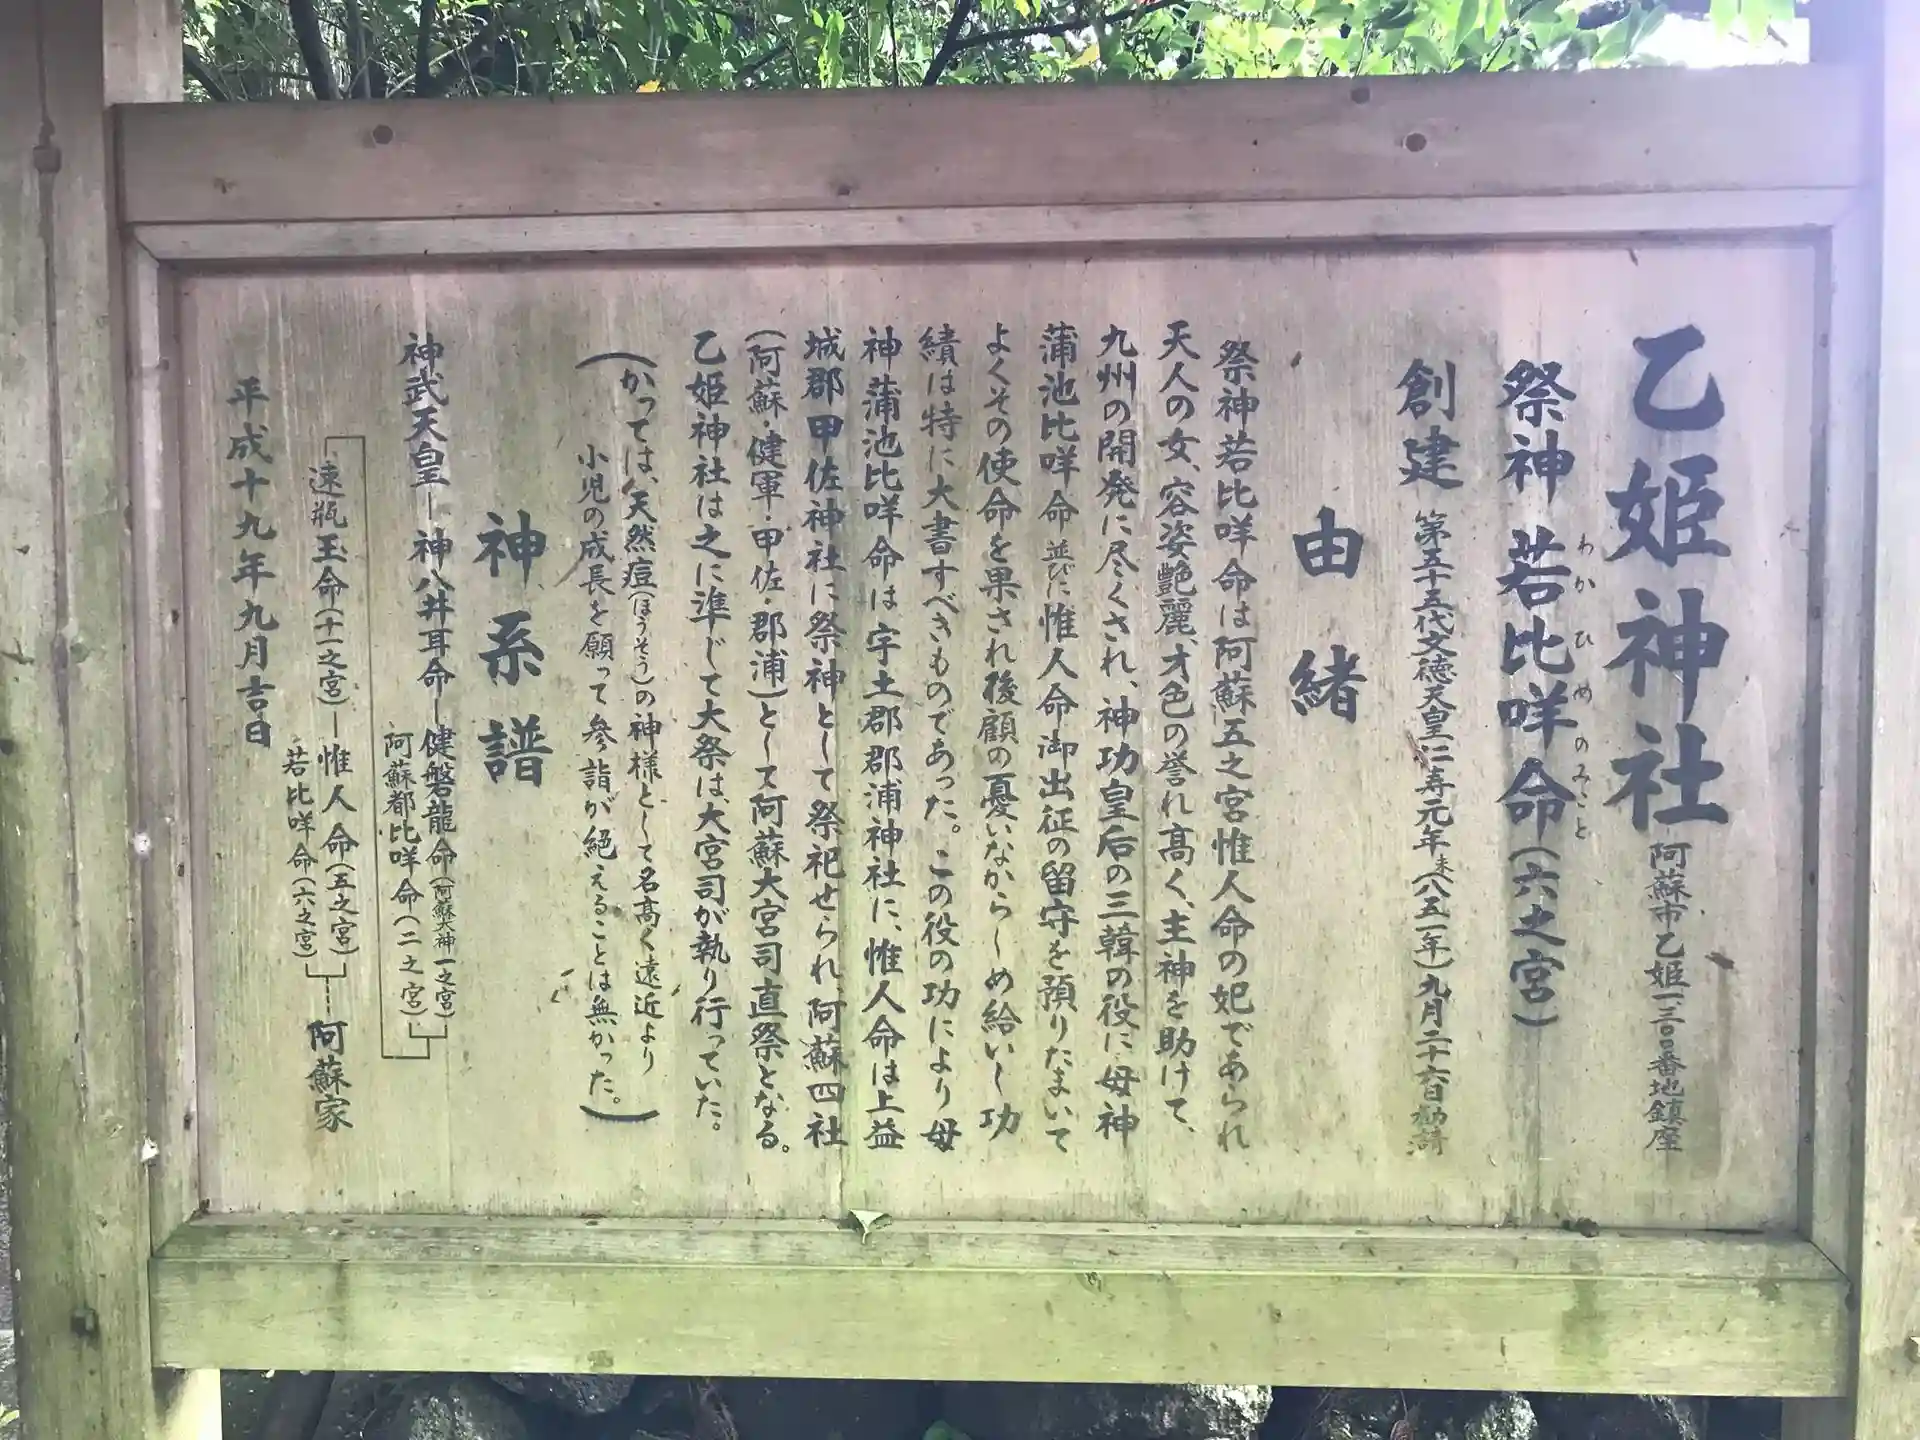 乙姫神社 阿蘇市乙姫一三〇番地鎮座
祭神 若比咩命(六之宮)
わかひめのみこと
創建 第五十五代文徳天皇仁寿元年未(八五一年)九月二十六日勧請
由緒
祭神若比咩命は阿蘇五之宮惟人命の妃であられ
天人の女、容姿艶麗、才色の誉れ高く、主神を助けて、
九州の開発に尽くされ、神功皇后の三韓の役に母神
蒲池比咩命並びに惟人命御出征の留守を預りたまいて
よくその使命を果され後顧の憂いなからしめ給いし功
績は特に大書すべきものであった。この役の功により母
神蒲池比咩命は宇土郡郡浦神社に、惟人命は上益
城郡甲佐神社に祭神として祭祀せられ、阿蘇四社
(阿蘇・健軍・甲佐・郡浦)として阿蘇大宮司直祭となる。
乙姫神社は之に準じて大祭は、大宮司が執り行っていた。
(かっては、天然痘(ほうそう)の神様として名高く遠近より
小児の成長を願って参詣が絶えることは無かった。)
神系譜
神武天皇―神八井耳命―健磐龍命(阿蘇大神一之宮)
阿蘇都比咩命(二之宮)
速瓶玉命(十一之宮)―惟人命(五之宮)
若比咩命(六之宮)
阿蘇家
平成十九年九月吉日